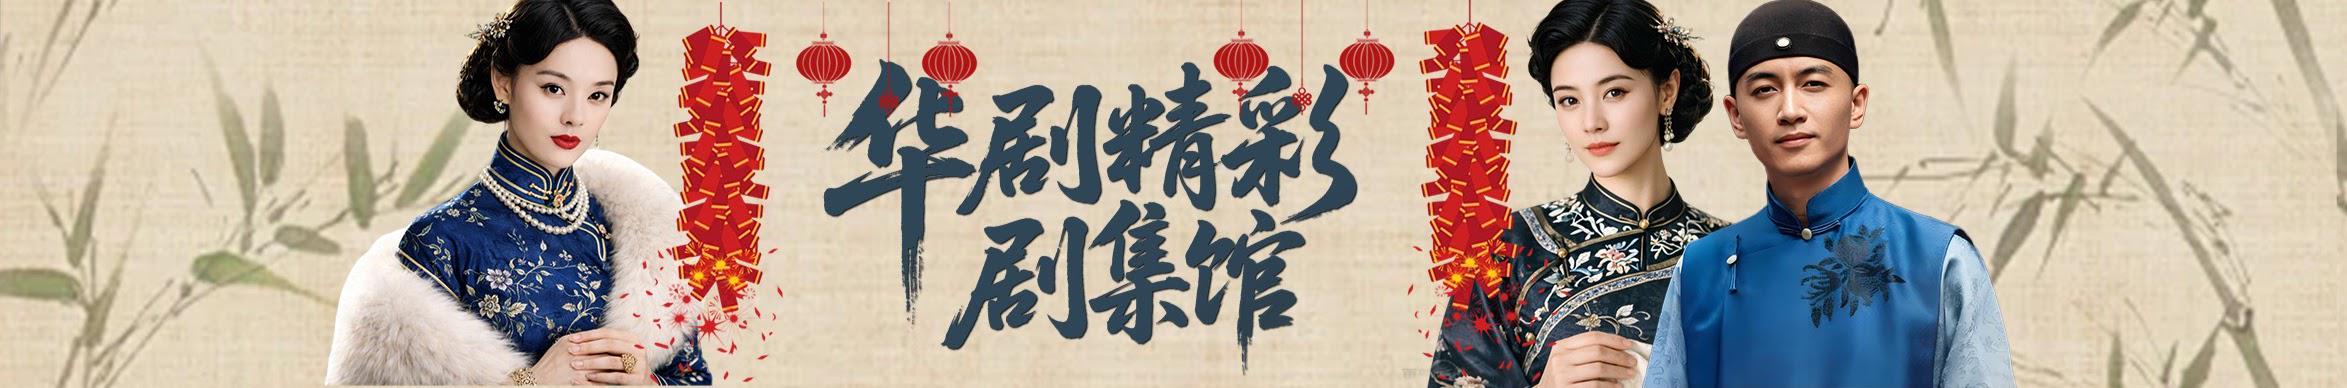 华剧精彩
剧集馆